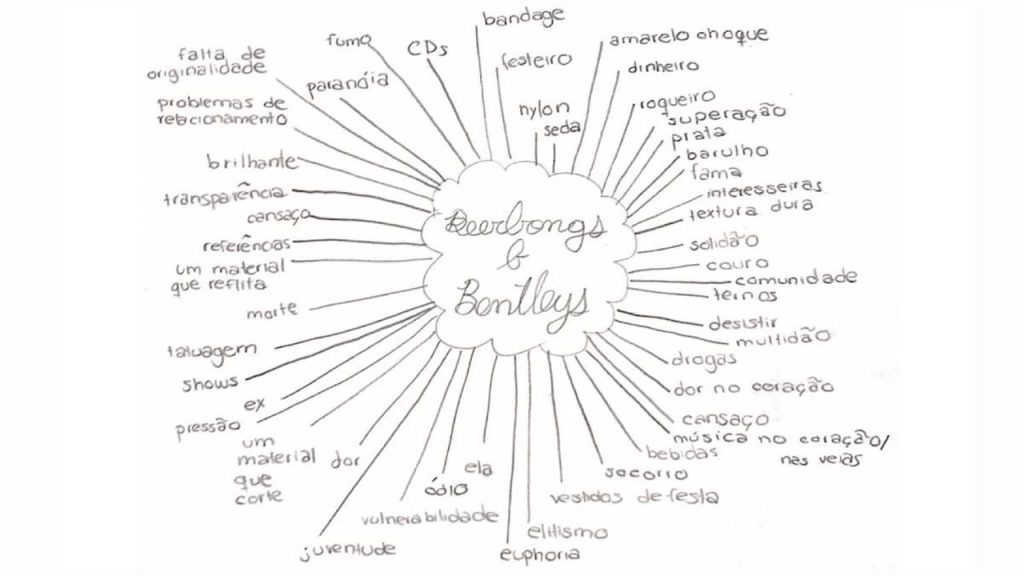 bandage
amarelo choque
fumo
CDs
falta de
originalidade
festeiro
dinheiro
paranóia
problemas de
relacionamento
nylon
seda
roqueiro
superação
prata
barulho
fama
brilhante
interesseiras
textura dura
transparência
cansaço
Beerbongs
&
Bentleys
referências
solidão
um material
que reflita
couro
comunidade
ternos
morte
desistir
multidão
tatuagem
drogas
shows
dor no coração
ex
pressão
cansaço
música no coração/
nas veias
um
material
que
corte
dor
bebidas
ela
socorro
ódio
vestidos de festa
vulnerabilidade
elitismo
juventude
euphoria